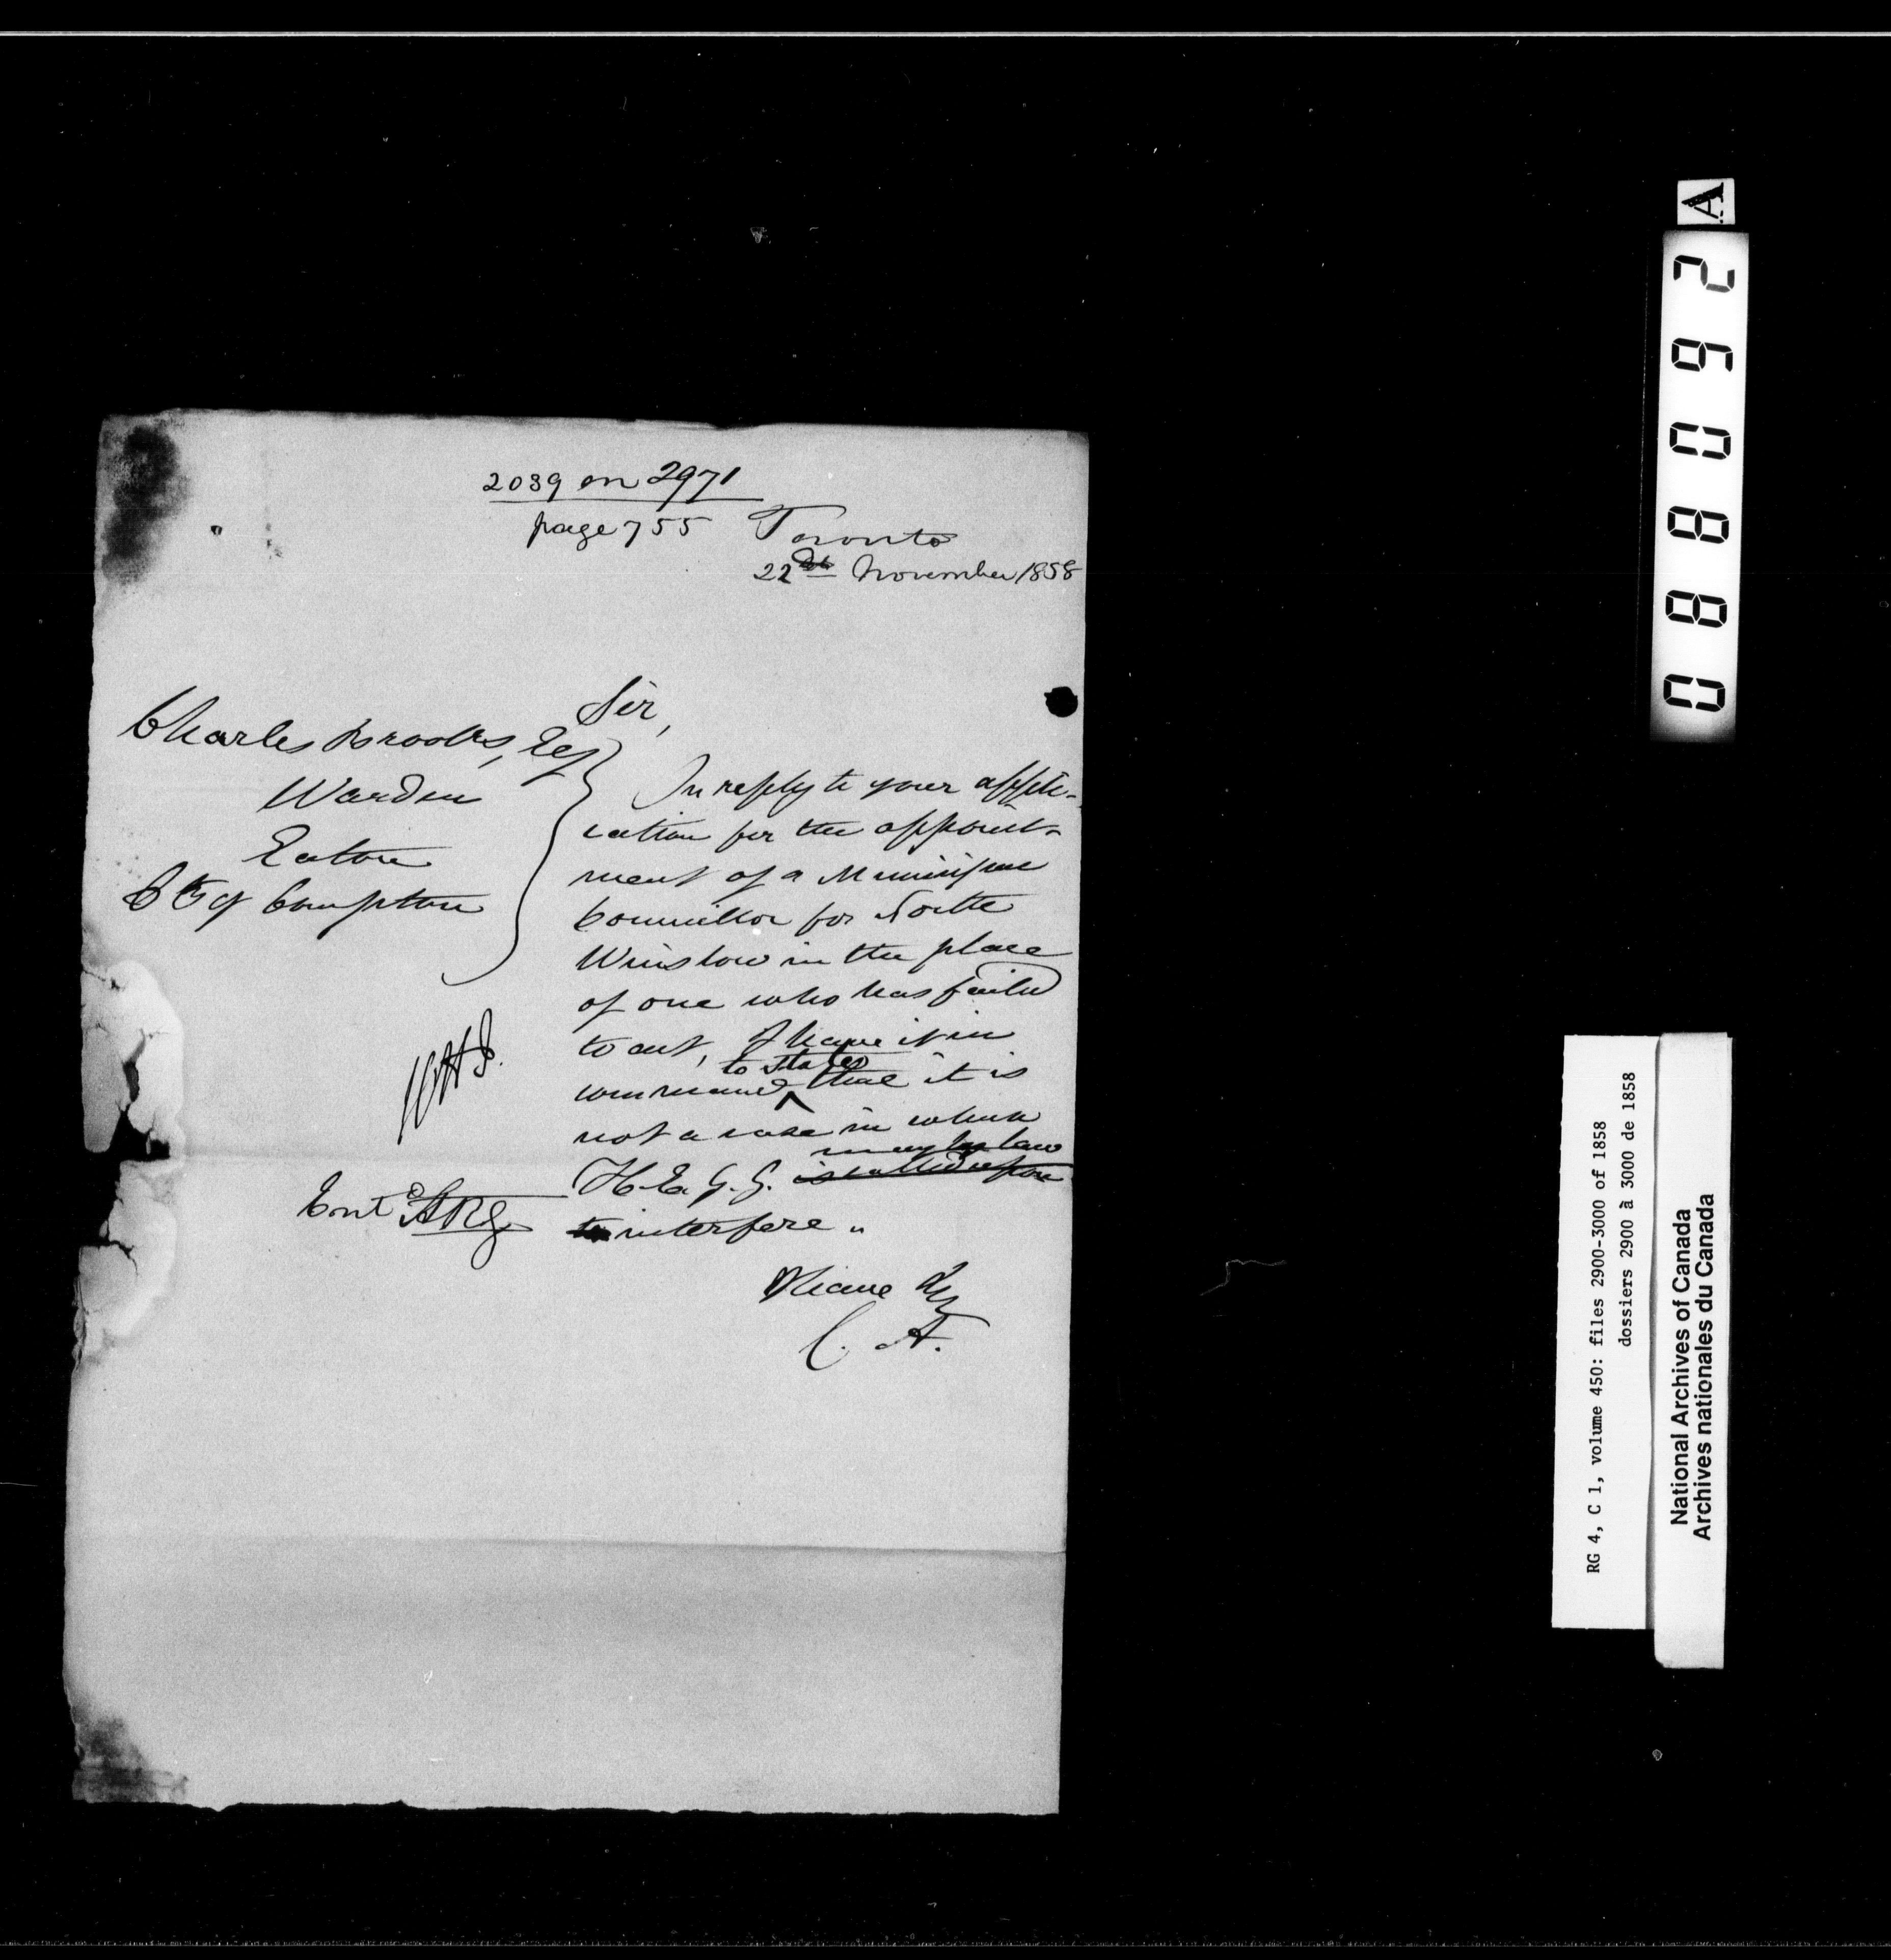 2039 on 2971
page 755 Toronto
22nd November 1858
Sir,
Charles Brooks, Esq
Warden
Eaton
Cty of Compton
In reply to your appli-
cation for the appoint-
ment of a Municipal
Councillor for North
Winslow in the place
of one who has failed
to act, I have it in
command to state that it is
not a case in which
H. E. G. G. may by law is called upon
to interfere.
I have &c
C. A.
Entd
RG 4, C 1, volume 450: files 2900-3000 of 1858
dossiers 2900 à 3000 de 1858
National Archives of Canada
Archives nationales du Canada
088092 A